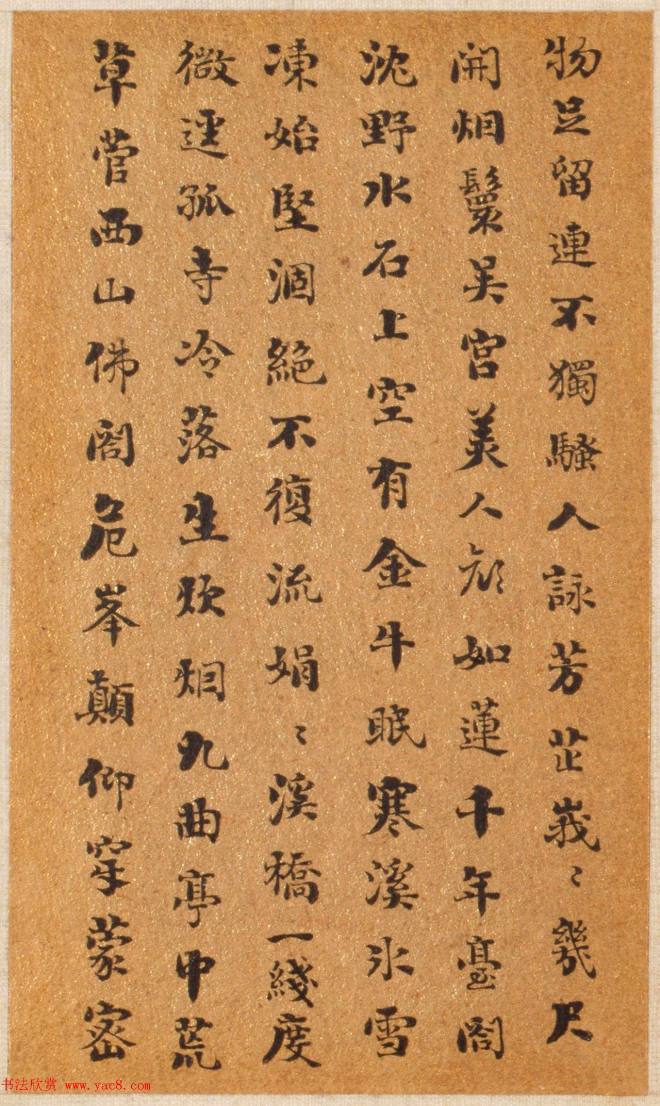 物足留連不獨騷人詠芳芷峩〻幾尺
開烟鬟吴宫美人顔如蓮千年臺閣
沈野水石上空有金牛眠寒溪氷雪
凍始堅涸絶不復流娟〻溪橋一綫度
微逕孤寺冷落生炊烟九曲亭中荒
草菅西山佛閣危峯顛仰穿蒙密
书法欣赏 www.yac8.com